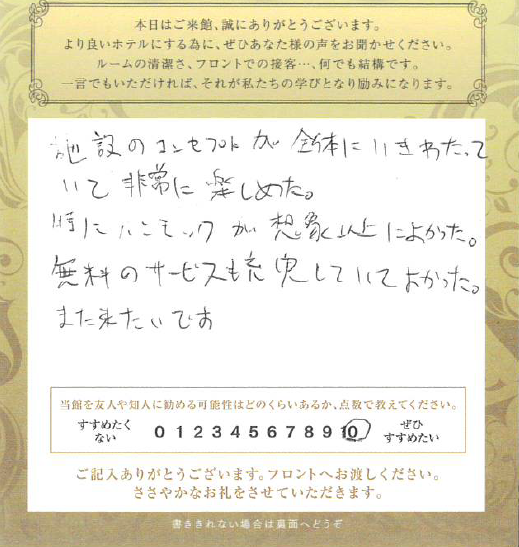 本日はご来館、誠にありがとうございます。
より良いホテルにする為に、ぜひあなた様の声をお聞かせください。
ルームの清潔さ、フロントでの接客…、何でも結構です。
一言でもいただければ、それが私たちの学びとなり励みになります。
施設のコンセプトが全体にいきわたって
いて非常に楽しめた。
特にハンモックが想像以上によかった。
無料のサービスも充実していてよかった。
また来たいです
当館を友人や知人に勧める可能性はどのくらいあるか、点数で教えてください。
すすめたくない 0 1 2 3 4 5 6 7 8 9 10 ぜひすすめたい
ご記入ありがとうございます。フロントへお渡しください。
ささやかなお礼をさせていただきます。
書ききれない場合は裏面へどうぞ